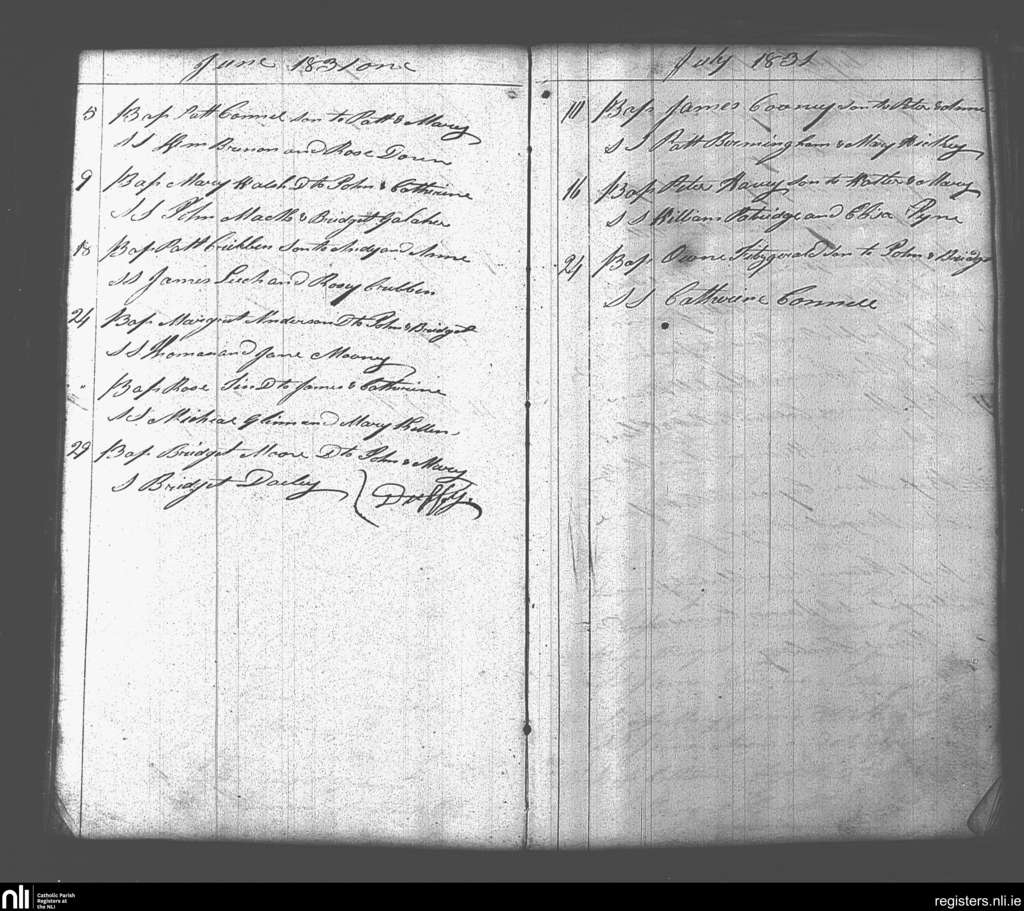 June 1831 one
5 Bap Patt Connel son to Patt & Mary
SS Wm Brenon and Rose Down
9 Bap Mary Walsh D to John & Catherine
SS John Mackle & Bridget Galaher
18 Bap Patt Cribben son to Andy and Anne
SS James Leech and Rosey Cribben
24 Bap Margret Anderson D to John & Bridget
SS Thomas and Jane Mooney
" Bap Rose D to James & Catherine
SS Micheal Glinn and Mary Kellen
29 Bap Bridget Moore D to John & Mary
S Bridget Dailey Duffy.
July 1831
10 Bap James Cooney son to Peter & Anne
SS Patt Birmingham & Mary Hickey
16 Bap Peter Harey son to Walter & Mary
SS William Patridge and Elisa Pyne
24 Bap Owne Fitzgerald son to John & Bridget
SS Catherine Connell
nli
Catholic Parish
Registers at
the NLI
registers.nli.ie